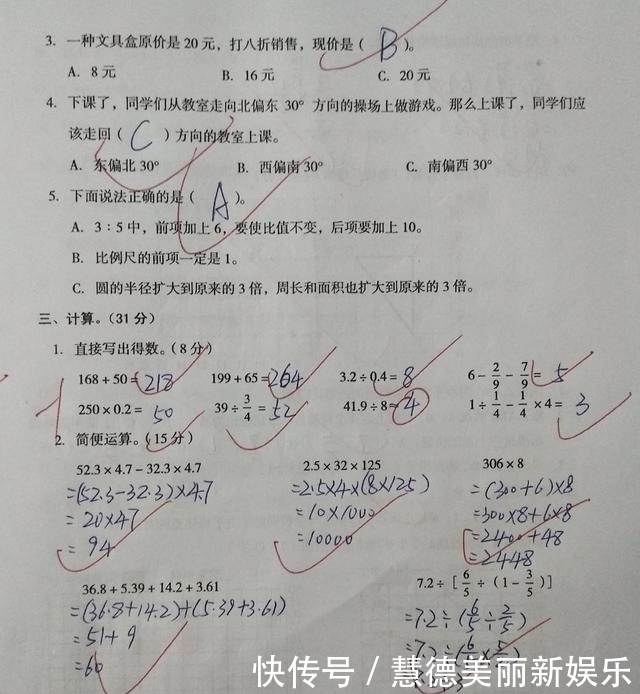 3. 一种文具盒原价是 20 元，打八折销售，现价是（ B ）。
A. 8 元 B. 16 元 C. 20 元
4. 下课了，同学们从教室走向北偏东 30° 方向的操场上做游戏。那么上课了，同学们应
该走回（ C ）方向的教室上课。
A. 东偏北 30° B. 西偏南 30° C. 南偏西 30°
5. 下面说法正确的是（ A ）。
A. 3∶5 中，前项加上 6，要使比值不变，后项要加上 10。
B. 比例尺的前项一定是 1。
C. 圆的半径扩大到原来的 3 倍，周长和面积也扩大到原来的 3 倍。
三、计算。（31 分）
1. 直接写出得数。（8 分）
168 + 50 = 218 199 + 65 = 264 3.2 ÷ 0.4 = 8 6 - 2/9 - 7/9 = 5
250 × 0.2 = 50 39 ÷ 3/4 = 52 41.9 ÷ 8 ≈ 4 1 ÷ 1/4 - 1/4 × 4 = 3
2. 简便运算。（15 分）
52.3 × 4.7 - 32.3 × 4.7 2.5 × 32 × 125 306 × 8
=(52.3-32.3)×4.7 =2.5×4×(8×125) =(300+6)×8
=20×4.7 =10×1000 =300×8+6×8
=94 =10000 =2400+48
=2448
36.8 + 5.39 + 14.2 + 3.61 7.2 ÷ [ 6/5 ÷ (1 - 3/5 )]
=(36.8+14.2)+(5.39+3.61) =7.2÷(6/5÷2/5)
=51+9 =7.2÷(6/5×5/
=60
快传号 / 慧德美丽新娱乐